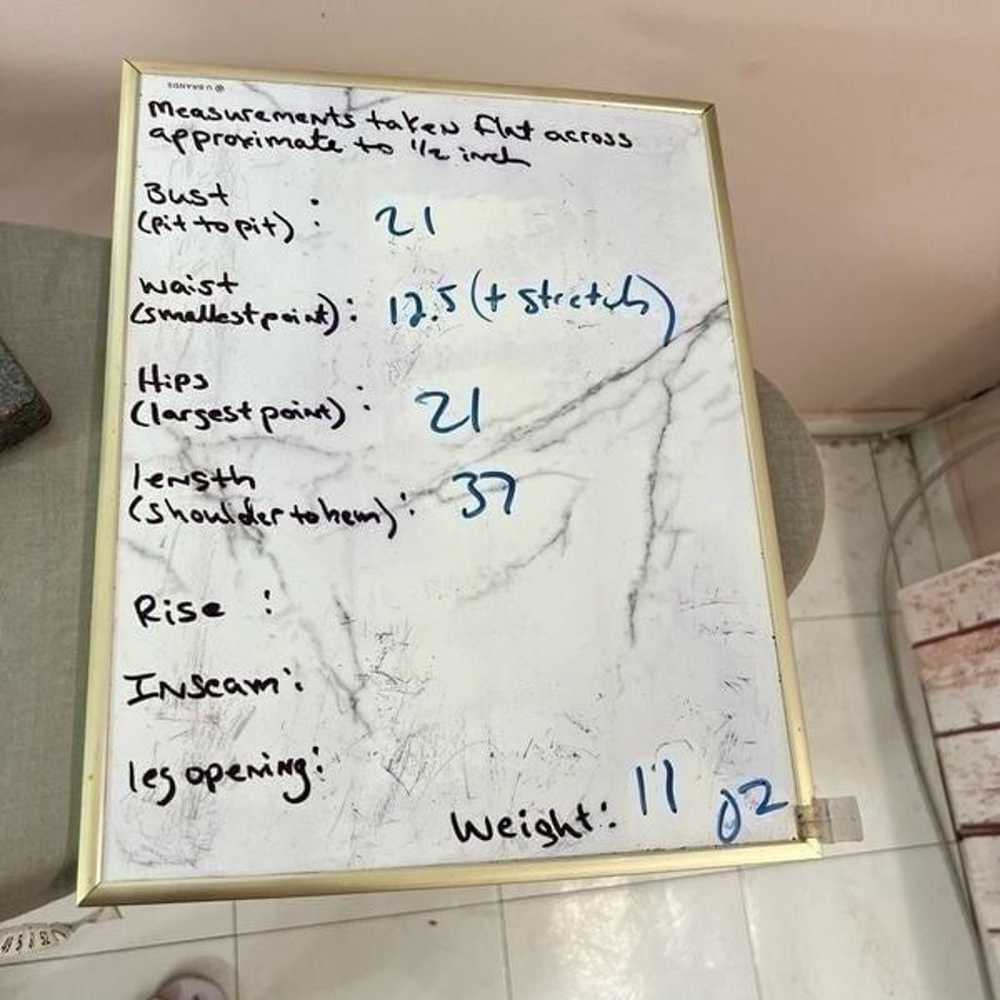 U BRANDS
Measurements taken flat across
approximate to 1/2 inch
Bust
(pit to pit) : 21
waist
(smallest point) : 12.5 (+ stretch)
Hips
(largest point) : 21
length
(shoulder to hem) : 37
Rise :
Inseam :
leg opening :
Weight : 11 oz